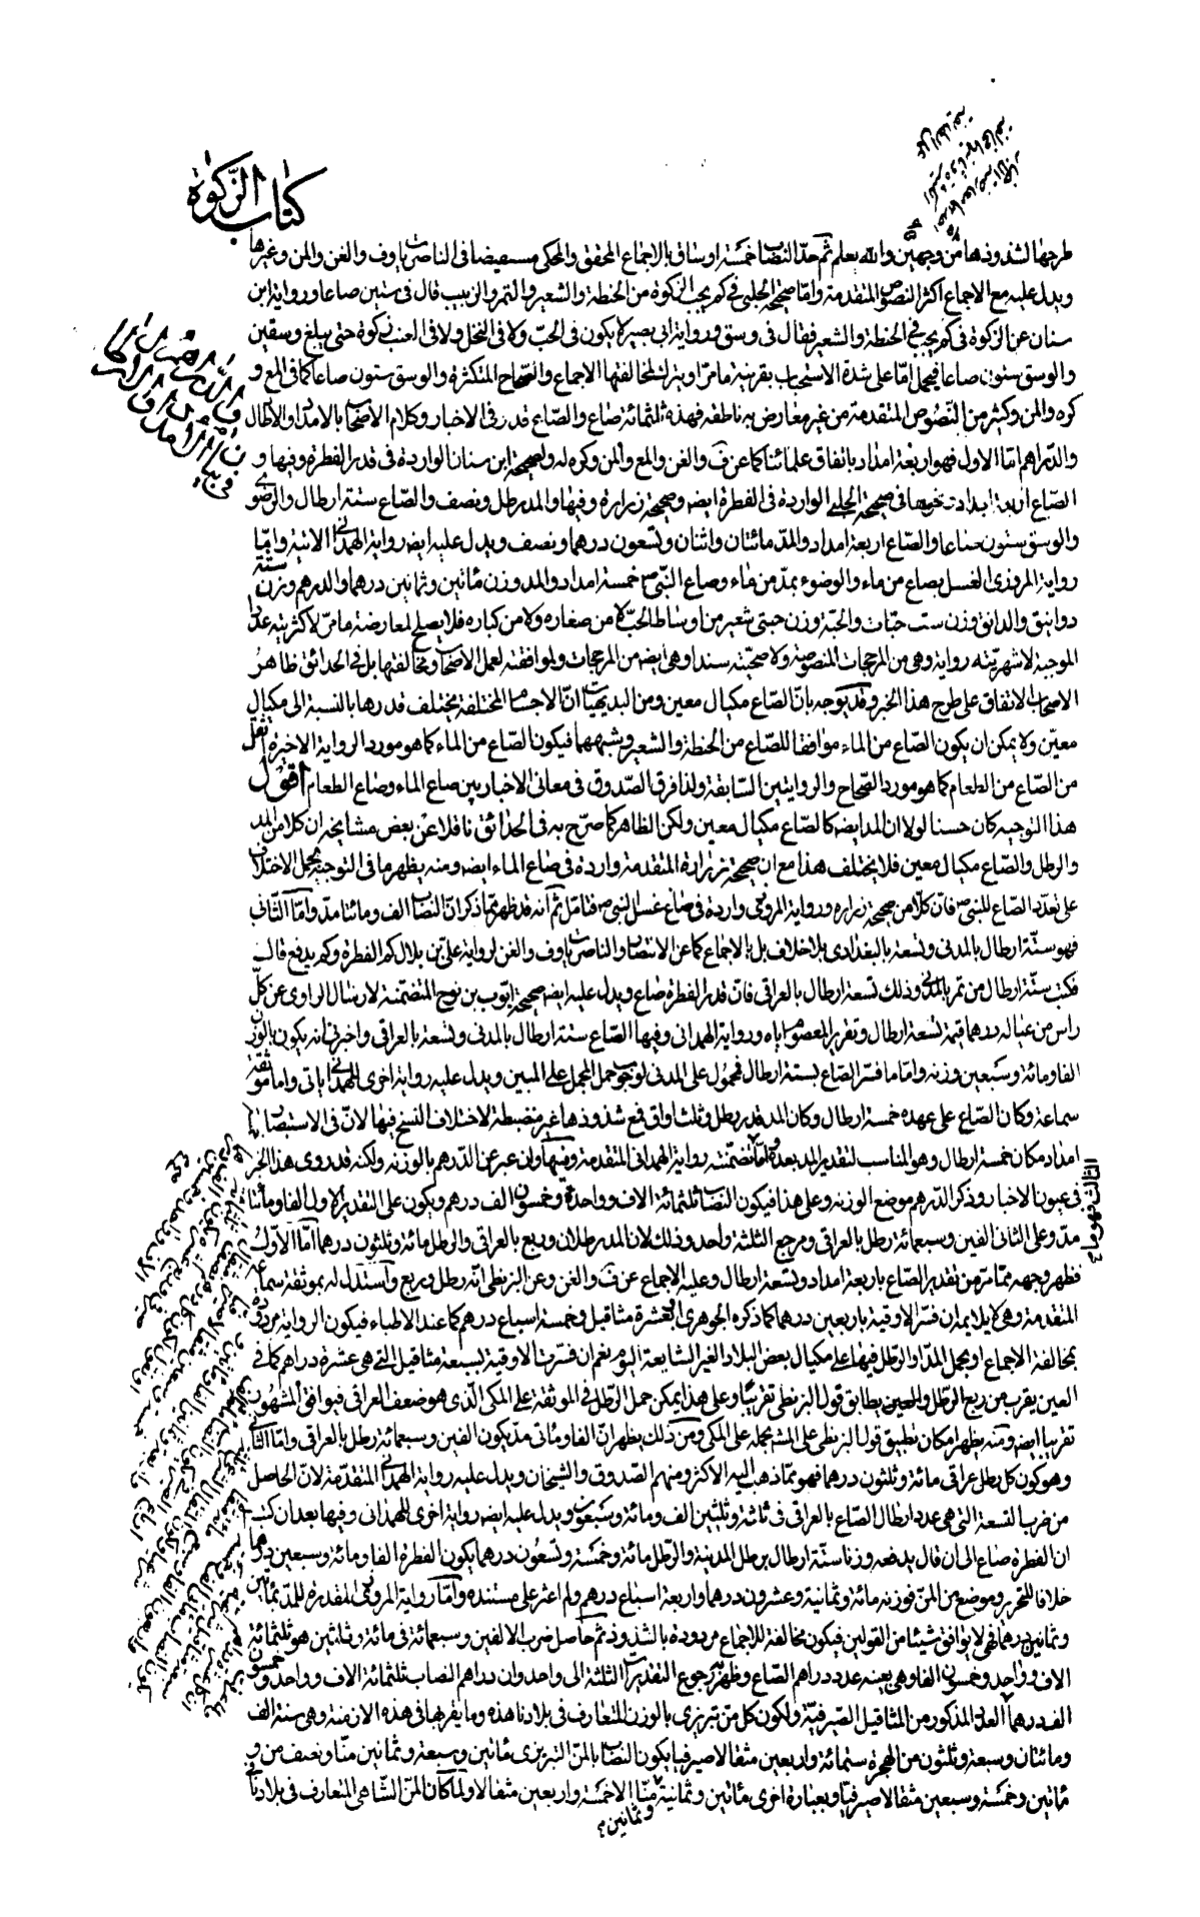 كتاب الزكوة
طرحها لشذوذها من وجهين والله يعلم ثم حد النصاب خمسة اوساق بالاجماع المحقق والمحكى مستفيضا فى الناصريات وف والغن والمن وغيرها
ويدل عليه مع الاجماع اكثر النصوص المتقدمة واما صحيحة الحلبى فى كم يجب الزكوة من الحنطة والشعير والتمر والزبيب قال فى ستين صاعا ورواية ابن
سنان عن الزكوة فى كم يجب فى الحنطة والشعير فقال فى وسق ورواية ابى بصير لا يكون فى الحب ولا فى النخل ولا فى العنب زكوة حتى يبلغ وسقين
والوسق ستون صاعا فيحمل اما على شدة الاستحباب بقرينة ما مر او يترك لمخالفتها الاجماع والصحاح المتكثرة والوسق ستون صاعا كما فى المع و
كره والمن وكثير من النصوص المتقدمة من غير معارض به ناطقه فهذه ثلثمائة صاع والصاع قدر فى الاخبار وكلام الاصحاب بالامداد والارطال
والدراهم اما الاول فهو اربعة امداد باتفاق علمائنا كما عن ف والغن والمع والمن وكره له ولصحيحة ابن سنان الواردة فى قدر الفطرة وفيها و
الصاع اربعة امداد ونحوها فى صحيحة الحلبى الواردة فى الفطرة ايضه وصحيحة زرارة وفيها والمد رطل ونصف والصاع ستة ارطال والرضوى
والوسق ستون صاعا والصاع اربعة امداد والمد مائتان واثنان وتسعون درهما ونصف ويدل عليه ايضه رواية الهمدانى الاتية واما
رواية المروزى الغسل بصاع من ماء والوضوء بمد من ماء وصاع النبى ص خمسة امداد والمد وزن مأتين وثمانين درهما والدرهم وزن ستة
دوانيق والدانق وزن ست حبات والحبة وزن حبتى شعير من اوساط الحب لا من صغاره ولا من كباره فلا يصلح لمعارضة ما مر لاكثريته عددا
الموجبة لاشهريته رواية وهى من المرجحات المنصوصة ولا صحيته سندا وهى ايضه من المرجحات ولموافقته لعمل الاصحاب ومخالفتها بل فى الحدائق ظاهر
الاصحاب الاتفاق على طرح هذا الخبر وقد يوجه بان الصاع مكيال معين ومن البديهيات ان الاجسام المختلفة يختلف قدرها بالنسبة الى مكيال
معين ولا يمكن ان يكون الصاع من الماء موافقا للصاع من الحنطة والشعير وشبههما فيكون الصاع من الماء كما هو مورد الرواية الاخيرة اثقل
من الصاع من الطعام كما هو مورد الصحاح والروايتين السابقة ولذا فرق الصدوق فى معانى الاخبار بين صاع الماء وصاع الطعام اقول
هذا التوجيه كان حسنا لولا ان المد ايضه كالصاع مكيال معين ولكن الظاهر كما صرح به فى الحدائق ناقلا عن بعض مشايخه ان كلا من المد
والرطل والصاع مكيال معين فلا يختلف هذا مع ان صحيحة زرارة المتقدمة واردة فى صاع الماء ايضه ومنه يظهر ما فى التوجيه بحمل الاختلاف
على تعدد الصاع للنبى ص فان كلا من صحيحة زرارة ورواية المروزى واردة فى صاع غسل النبى ص فتامل ثم انه قد ظهر مما ذكر ان النصاب الف ومائتا مد واما الثانى
فهو ستة ارطال بالمدنى وتسعة بالبغدادى بلا خلاف بل بالاجماع كما عن الانتصار والناصريات وف والغن لرواية على بن بلال كم الفطرة وكم يدفع قال
فكتب ستة ارطال من تمر بالمدنى وذلك تسعة ارطال بالعراقى فان قدر الفطرة صاع ويدل عليه ايضه صحيحة ايوب بن نوح المتضمنة لارسال الراوى عن كل
راس من عياله درهما قيمة تسعة ارطال وتقرير المعصوم اياه ورواية الهمدانى وفيها الصاع ستة ارطال بالمدنى وتسعة بالعراقى واخبرنى انه يكون بالوزن
الفا ومائة وسبعين وزنه واما ما فسر الصاع بستة ارطال فمحمول على المدنى لوجوب حمل المجمل على المبين ويدل عليه رواية اخرى للهمدانى ياتى واما موثقة
سماعة وكان الصاع على عهده خمسة ارطال وكان المد قدر رطل وثلث اواق فمع شذوذها غير منضبطة لاختلاف النسخ فيها لان فى الاستبصار
امداد مكان خمسة ارطال وهو المناسب لتقدير المد بعده واما الثالث فهو ما تضمنته رواية الهمدانى المتقدمة وفيها وان عبر عن الدرهم بالوزنه ولكنه قد روى هذا الخبر
فى عيون الاخبار وذكر الدرهم موضع الوزنه وعلى هذا فيكون النصاب ثلثمائة الاف وواحدة وخمسون الف درهم ويكون على التقدير الاول الفا ومائتا
مد وعلى الثانى الفين وسبعمائة رطل بالعراقى ومرجع الثلثة واحد وذلك لان المد رطلان وربع بالعراقى والرطل مائة وثلثون درهما اما الاول
فظهر وجهه مما مر من تقدير الصاع باربعة امداد وتسعة ارطال وعليه الاجماع عن ف والغن وعن البزنطى انه رطل وربع واستدل له بموثقة سماعة
المتقدمة وهى لا يلايمه ان فسر الاوقية باربعين درهما كما ذكره الجوهرى او بعشرة مثاقيل وخمسة اسباع درهم كما عند الاطباء فيكون الرواية مردودة
بمخالفة الاجماع او يحمل المد والرطل فيها على مكيال بعض البلاد الغير الشايعة اليوم نعم ان فسرت الاوقية بسبعة مثاقيل التى هى عشرة دراهم كما فى
العين يقرب من ربع الرطل والعين يطابق قول البزنطى تقريبا وعلى هذا يمكن حمل الرطل فى الموثقة على المكى الذى هو ضعف العراقى فيوافق المشهور
تقريبا ايضه ومنه يظهر امكان تطبيق قول البزنطى على المشهور بحمله على المكى ومن ذلك يظهر ان الفا ومائتى مد يكون الفين وسبعمائة رطل بالعراقى واما الثانى
وهو كون كل رطل عراقى مائة وثلثون درهما فهو مما ذهب اليه الاكثر ومنهم الصدوق والشيخان ويدل عليه رواية الهمدانى المتقدمة لان الحاصل
من ضرب التسعة التى هى عدد ارطال الصاع بالعراقى فى مائة وثلثين الف ومائة وسبعون ويدل عليه ايضه رواية اخرى للهمدانى وفيها بعد ان كتب
ان الفطرة صاع الى ان قال يدفعه وزنا ستة ارطال برطل المدينة والرطل مائة وخمسة وتسعون درهما يكون الفطرة الفا ومائة وسبعين درهما
خلافا للتحرير وموضع من المن فوزنه مائة وثمانية وعشرون درهما واربعة اسباع درهم ولم اعثر على مستنده واما رواية المروزى المقدرة للمد بمائتين
وثمانين درهما فهى لا يوافق شيئا من القولين فيكون مخالفة للاجماع مردودة بالشذوذ ثم حاصل ضرب الالفين وسبعمائة فى مائة وثلثين هو ثلثمائة
الاف وواحد وخمسون الفا وهى بعينه عدد دراهم الصاع وظهر رجوع التقديرات الثلثة الى واحد وان دراهم النصاب ثلثمائة الاف وواحد وخمسون
الف درهما العدد المذكور من المثاقيل الصيرفية ولكون كل من تبريزى بالوزن المتعارف فى بلادنا هذه وما يقربها فى هذه الازمنة وهى سنة الف
ومائتان وسبعة وثلثون من الهجرة ستمائة واربعين مثقالا صيرفيا يكون النصاب بالمن التبريزى مأتين وسبعة وثمانين منا ونصف من و
مأتين وخمسة وسبعين مثقالا صيرفيا وبعبارة اخرى مأتين وثمانية وثمانين منا الا خمسة واربعين مثقالا ولما كان المن الشاهى المتعارف فى بلادنا